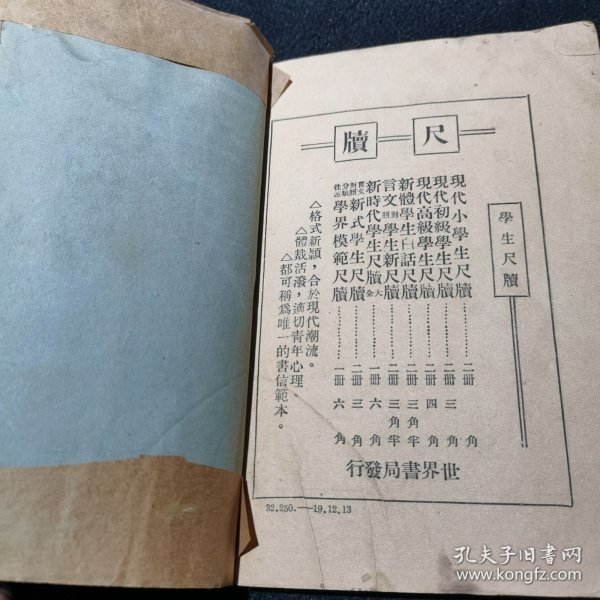 學生尺牘
尺牘
現代小學生尺牘⋯⋯⋯二冊二角
現代初級學生尺牘⋯⋯⋯二冊三角
現代高級學生尺牘⋯⋯⋯二冊四角
新體學生白話尺牘⋯⋯⋯二冊三角半
言文對照學生新尺牘⋯⋯⋯二冊三角半
新時代學生尺牘大全⋯⋯⋯一冊六角
言文對照新式學生尺牘⋯⋯⋯二冊三角
分類學界模範尺牘⋯⋯⋯一冊六角
△格式新穎,合於現代潮流。
△體裁活潑,適切青年心理。
△都可稱爲唯一的書信範本。
世界書局發行
32.250.——19.12.13
孔夫子旧书网
www.kongfz.com